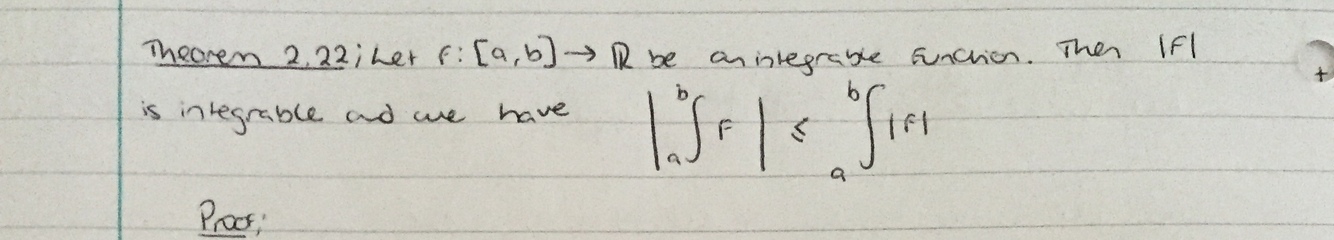 Theorem 2.22; Let f: [a,b] → ℝ be an integrable function. Then |f|
is integrable and we have |ₐᵇ∫ f| ≤ ₐᵇ∫ |f|
Proof;